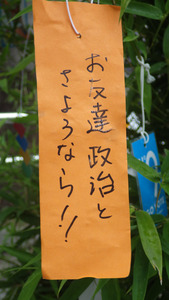 お友達政治と
さよろなら!!